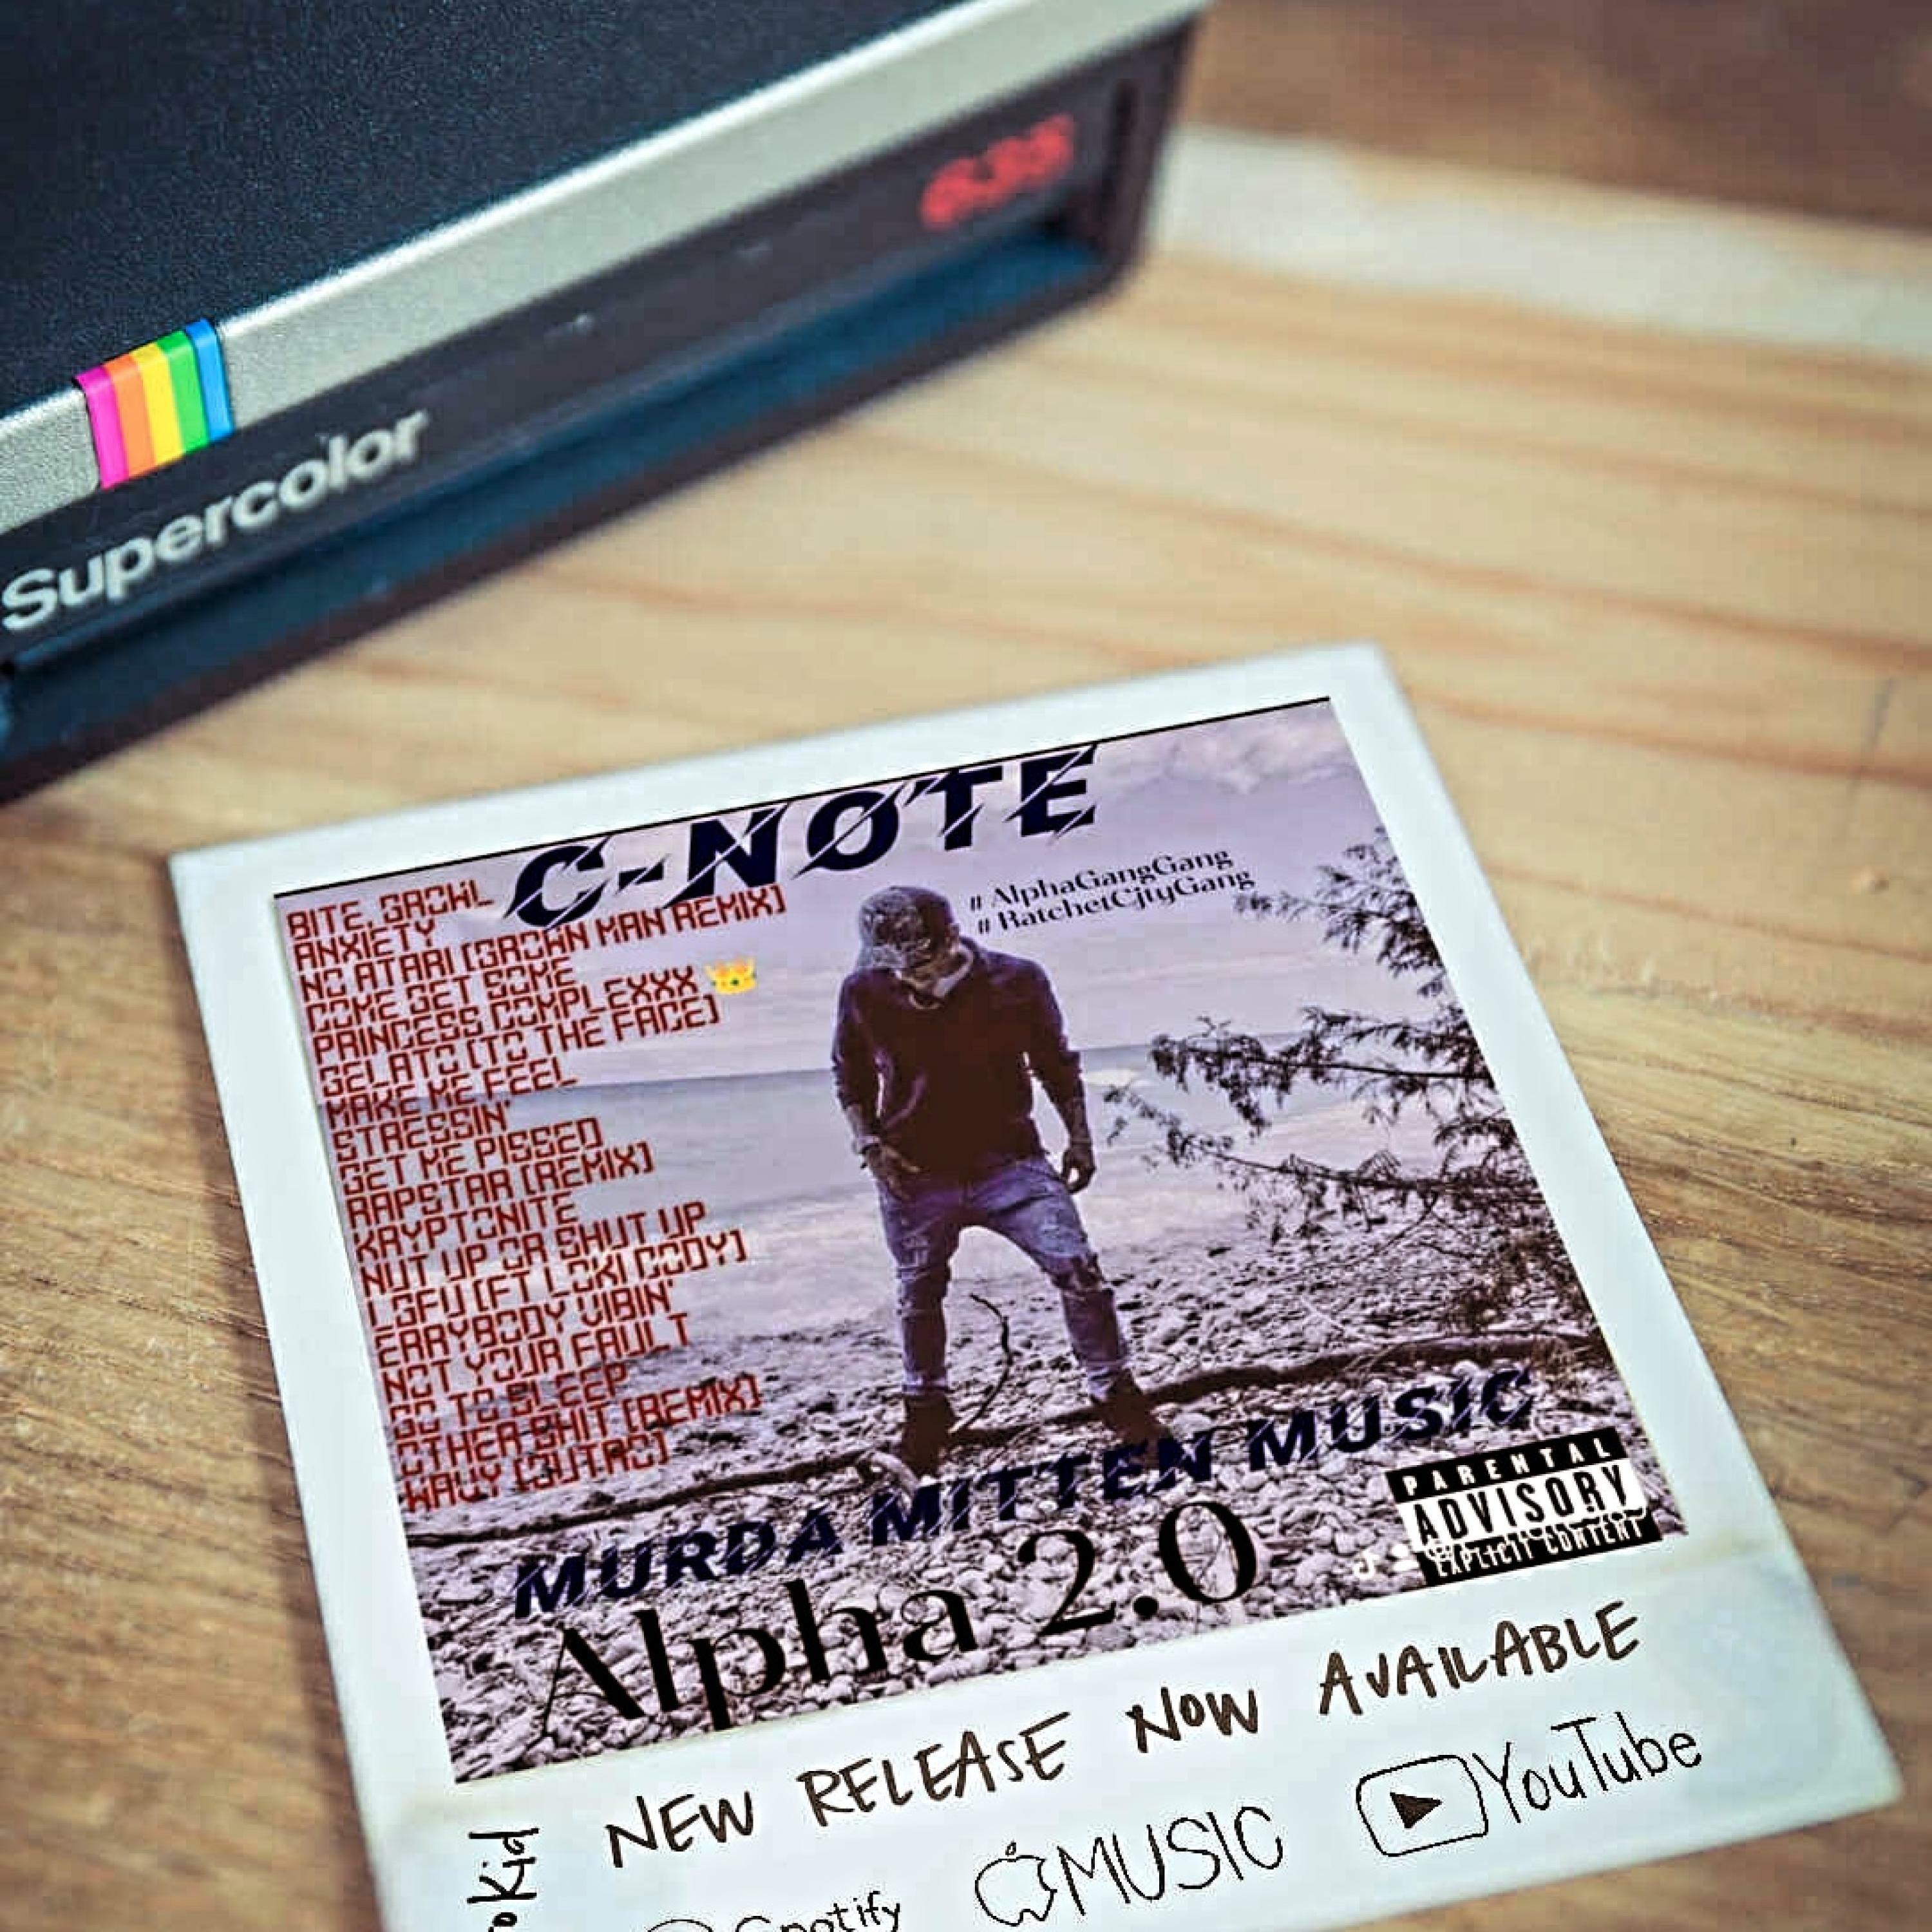 Supercolor
635
C-NOTE
# AlphaGangGang
# RatchetCityGang
BITE, GROWL
ANXIETY
NO ATARI [GROWN MAN REMIX]
COME GET SOME
PRINCESS COMPLEXXX 👑
GELATO [TO THE FACE]
MAKE ME FEEL
STRESSIN'
GET ME PISSED
RAPSTAR [REMIX]
KRYPTONITE
NUT UP OR SHUT UP
LGFU [FT LOKI CODY]
ERRYBODY VIBIN'
NOT YOUR FAULT
GO TO SLEEP
OTHER SHIT [REMIX]
WAVY [OUTRO]
MURDA MITTEN MUSIC
Alpha 2.0
PARENTAL
ADVISORY
EXPLICIT CONTENT
NEW RELEASE NOW AVAILABLE
Kid
Spotify
MUSIC
YouTube